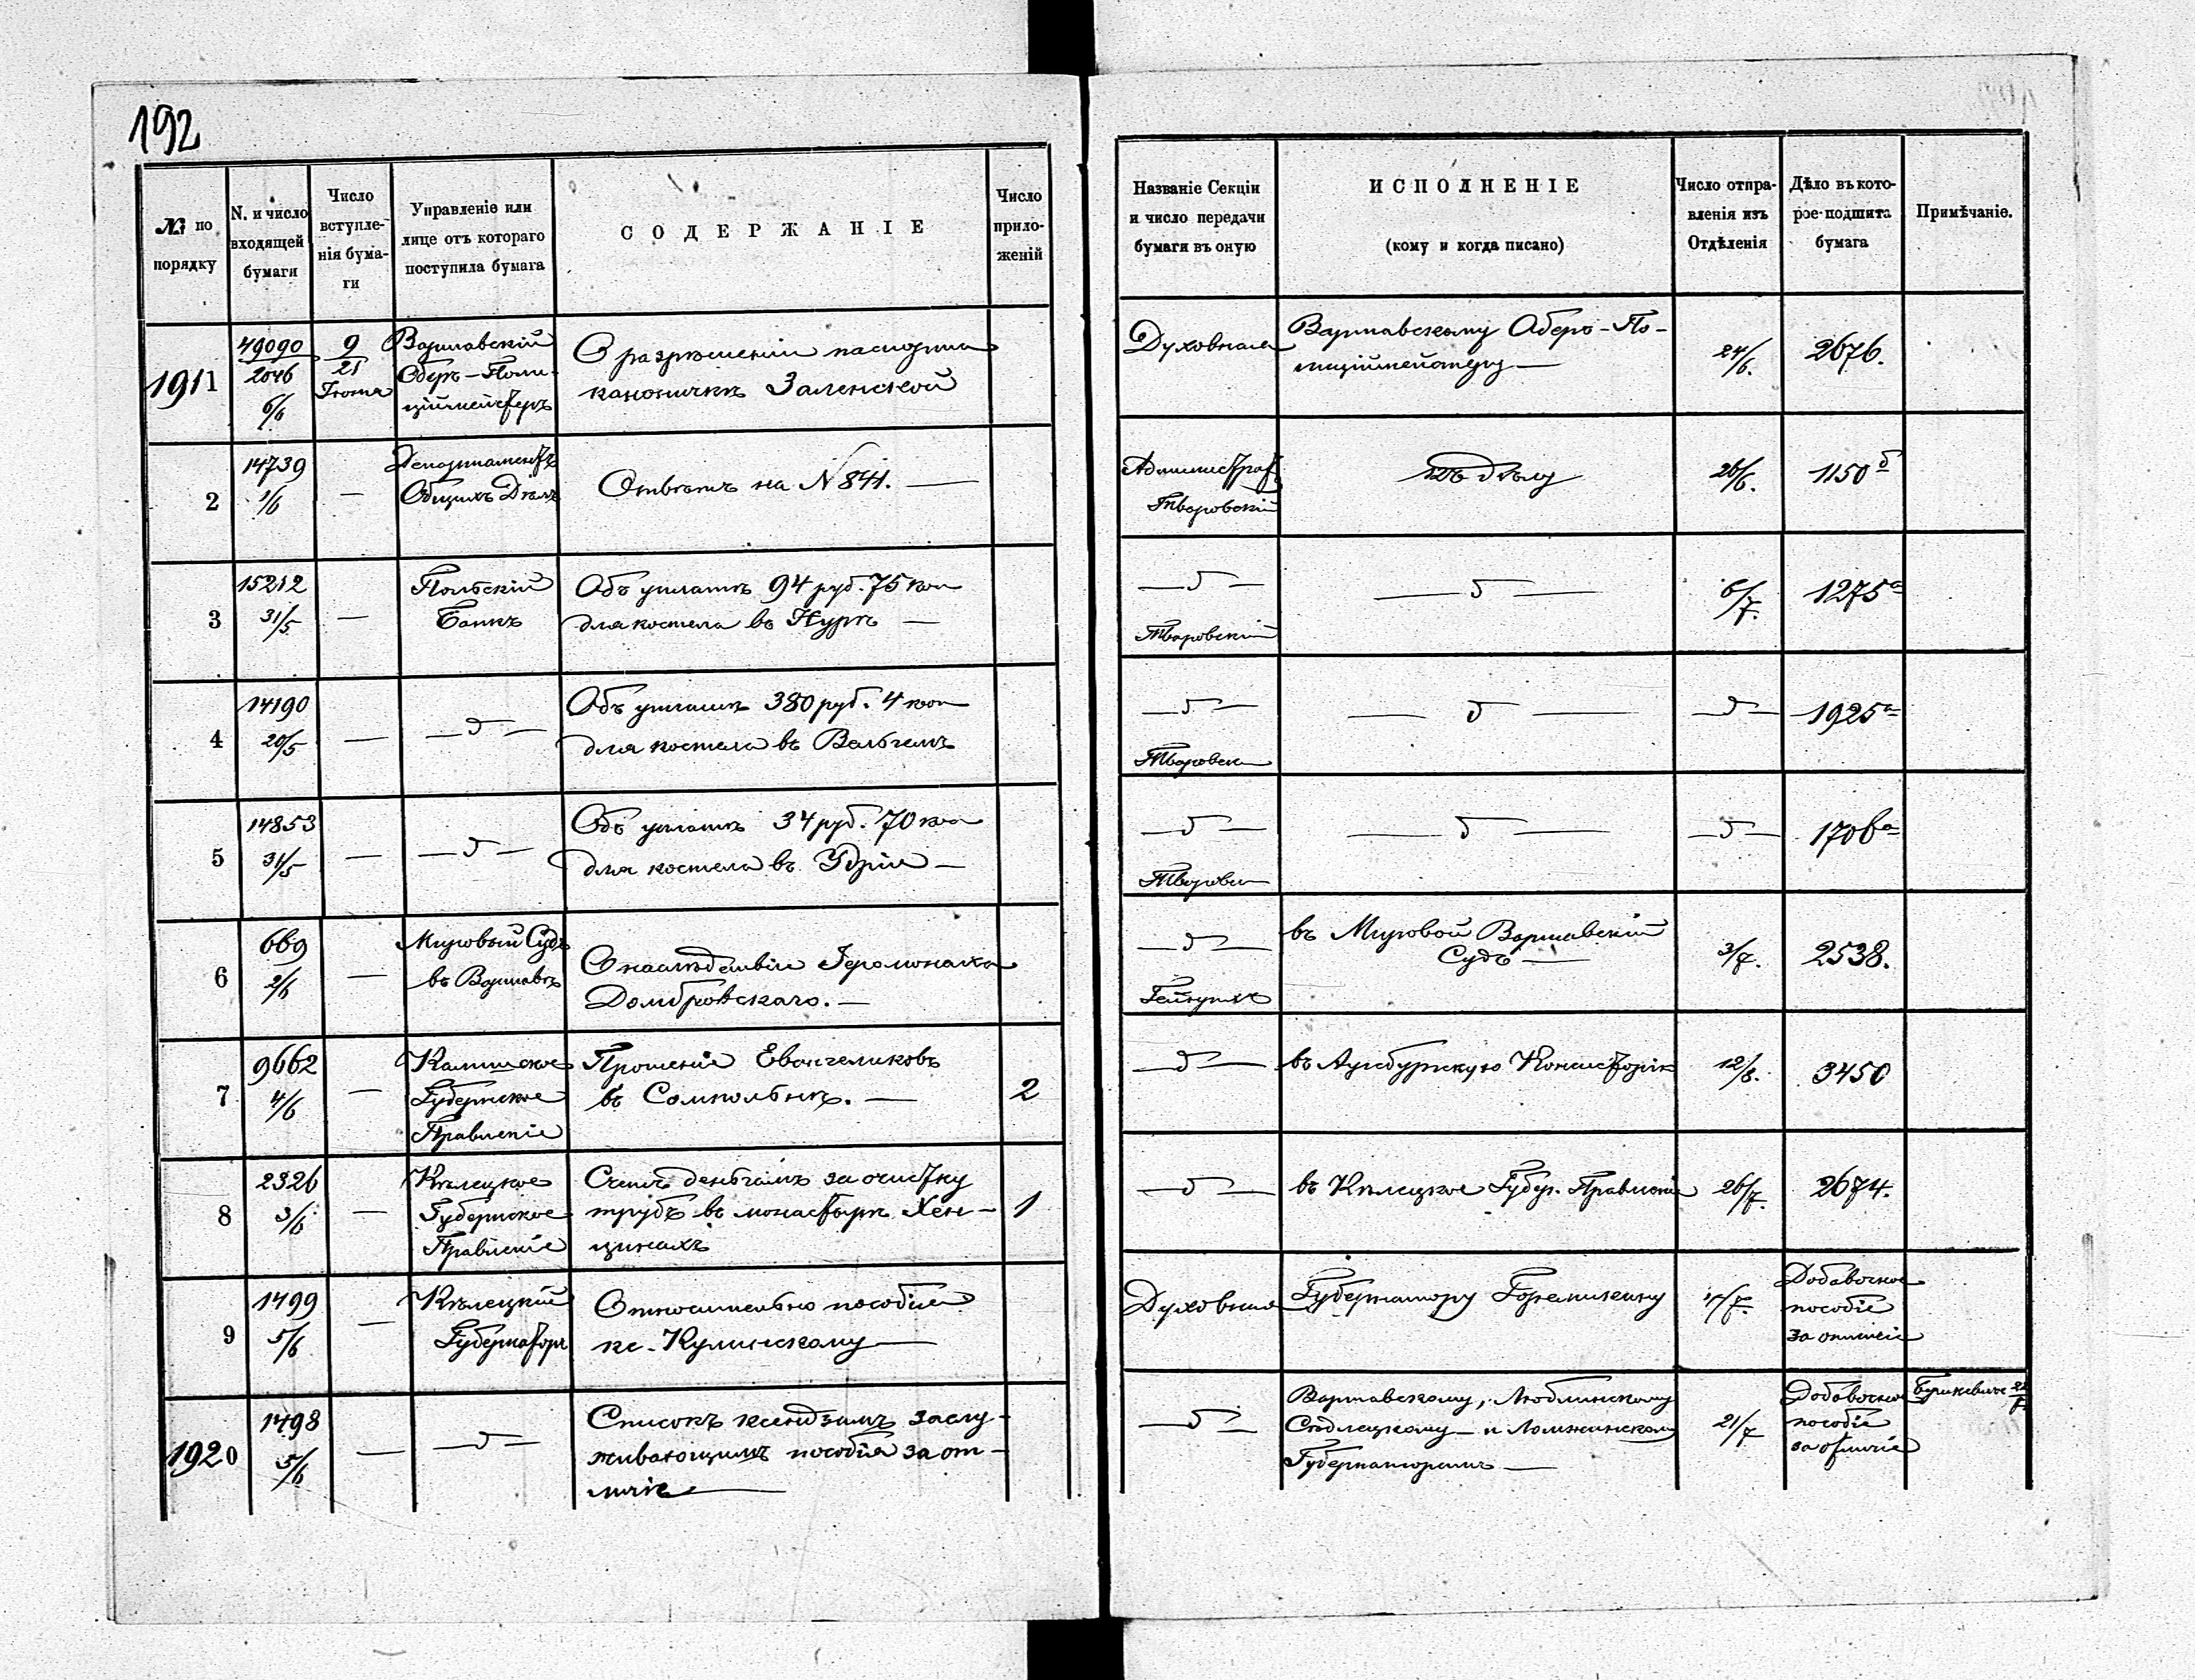 192
№ по порядку
N. и число входящей бумаги
Число вступле-
нія бума-
ги
Управленіе или
лице отъ котораго
поступила бумага
СОДЕРЖАНІЕ
Число
прило-
женій
Названіе Секціи
и число передачи
бумаги въ оную
ИСПОЛНЕНІЕ
(кому и когда писано)
Число отпра-
вленія изъ
Отдѣленія
Дѣло въ кото-
рое подшита
бумага
Примѣчаніе.
1911
49090
2046
6/6
9
21
Іюня
Варшавскій
Оберъ-Поли-
ціймейстеръ
О разрѣшеніи паспорта
каноничкѣ Заленской
Духовная
Варшавскому Оберъ-По-
лиціймейстеру —
24/6.
2676.
2
14739
1/6
—
Департаментъ
Общихъ Дѣлъ
Отвѣтъ на N 841. —
Администрат
Творовскій
Къ дѣлу
26/6.
1150 б
3
15212
31/5
—
Польскій
Банкъ
Объ уплатѣ 94 руб. 75 коп
для костела въ Нурѣ —
— д —
Творовскій
— д —
6/7.
1275 а
4
14190
20/5
—
— д —
Объ уплатѣ 380 руб. 4 коп
для костела въ Вельгемъ
— д —
Творовск
— д —
— д —
1925 а
5
14853
31/5
—
— д —
Объ уплатѣ 34 руб. 70 коп
для костела въ —
— д —
Творовск
— д —
— д —
1706 а
6
669
2/6
—
Мировый Судъ
въ Варшавѣ
О наслѣдствіи Іеромонаха
Домбровскаго. —
— д —
въ Мировой Варшавскій
Судъ —
3/7.
2538.
7
9662
4/6
—
Калишское
Губернское
Правленіе
Прошеніе Евангеликовъ
въ Сомпольнѣ. —
2
— д —
въ Аугсбургскую Консисторію
12/8.
3450
8
2326
3/6
—
Кѣлецкое
Губернское
Правленіе
Счетъ деньгамъ за очистку
трубъ въ монастырѣ Хен-
цинахъ
1
— д —
въ Кѣлецкое Губер. Правленіе
26/7.
2674.
9
1499
5/6
—
Кѣлецкій
Губернаторъ
Относительно пособія
кс. Кулинскому —
Духовная
Губернатору Горемыкину
17/7.
Добавочное
пособіе
за отличіе
1920
1498
5/6
—
— д —
Списокъ ксендзамъ заслу-
живающимъ пособія за от-
личіе —
— д —
Варшавскому, Люблинскому
Сѣдлецкому — и Ломжинскому
Губернаторамъ —
21/7
Добавочное
пособіе
за отличіе